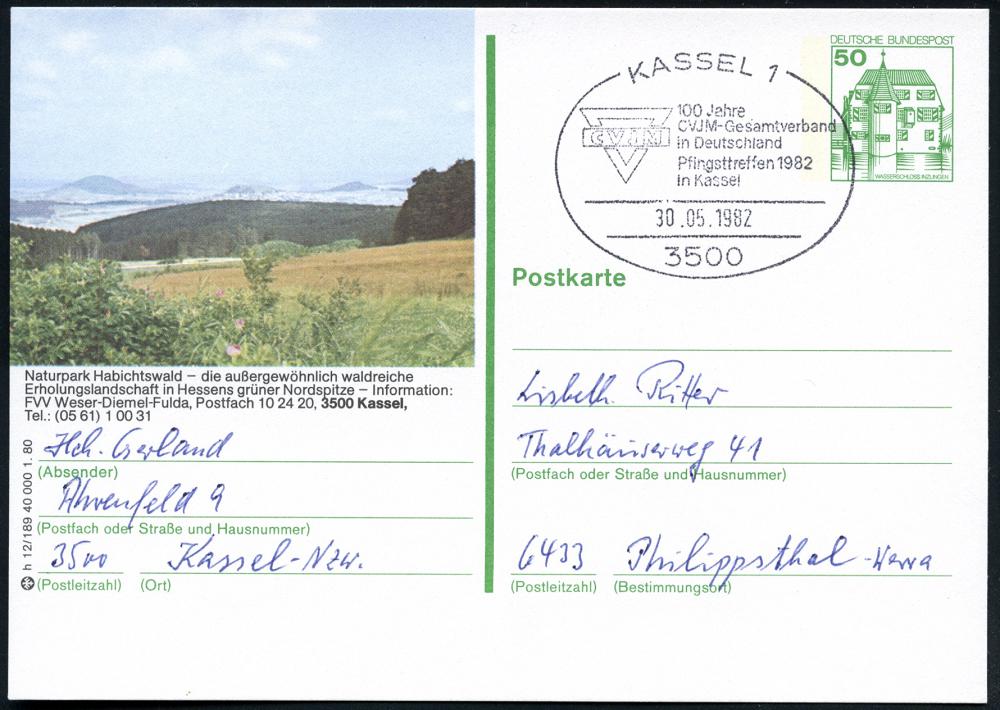 Naturpark Habichtswald – die außergewöhnlich waldreiche
Erholungslandschaft in Hessens grüner Nordspitze – Information:
FVV Weser-Diemel-Fulda, Postfach 10 24 20, 3500 Kassel,
Tel.: (05 61) 1 00 31
Hch. Gerland
(Absender)
Ahrenfeld 9
(Postfach oder Straße und Hausnummer)
3500 Kassel-Nzw.
(Postleitzahl) (Ort)
h 12/189 40 000 1. 80
KASSEL 1
CVJM
100 Jahre
CVJM-Gesamtverband
in Deutschland
Pfingsttreffen 1982
in Kassel
30.05.1982
3500
DEUTSCHE BUNDESPOST
50
WASSERSCHLOSS INZLINGEN
Postkarte
Lisbeth Ritter
Thalhäuserweg 41
(Postfach oder Straße und Hausnummer)
6433 Philippsthal-Werra
(Postleitzahl) (Bestimmungsort)